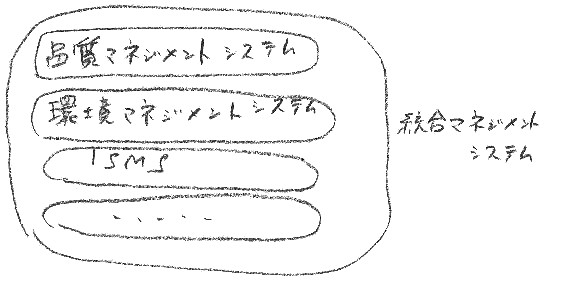 品質マネジメントシステム
環境マネジメントシステム
ISMS
......
統合マネジメント
システム